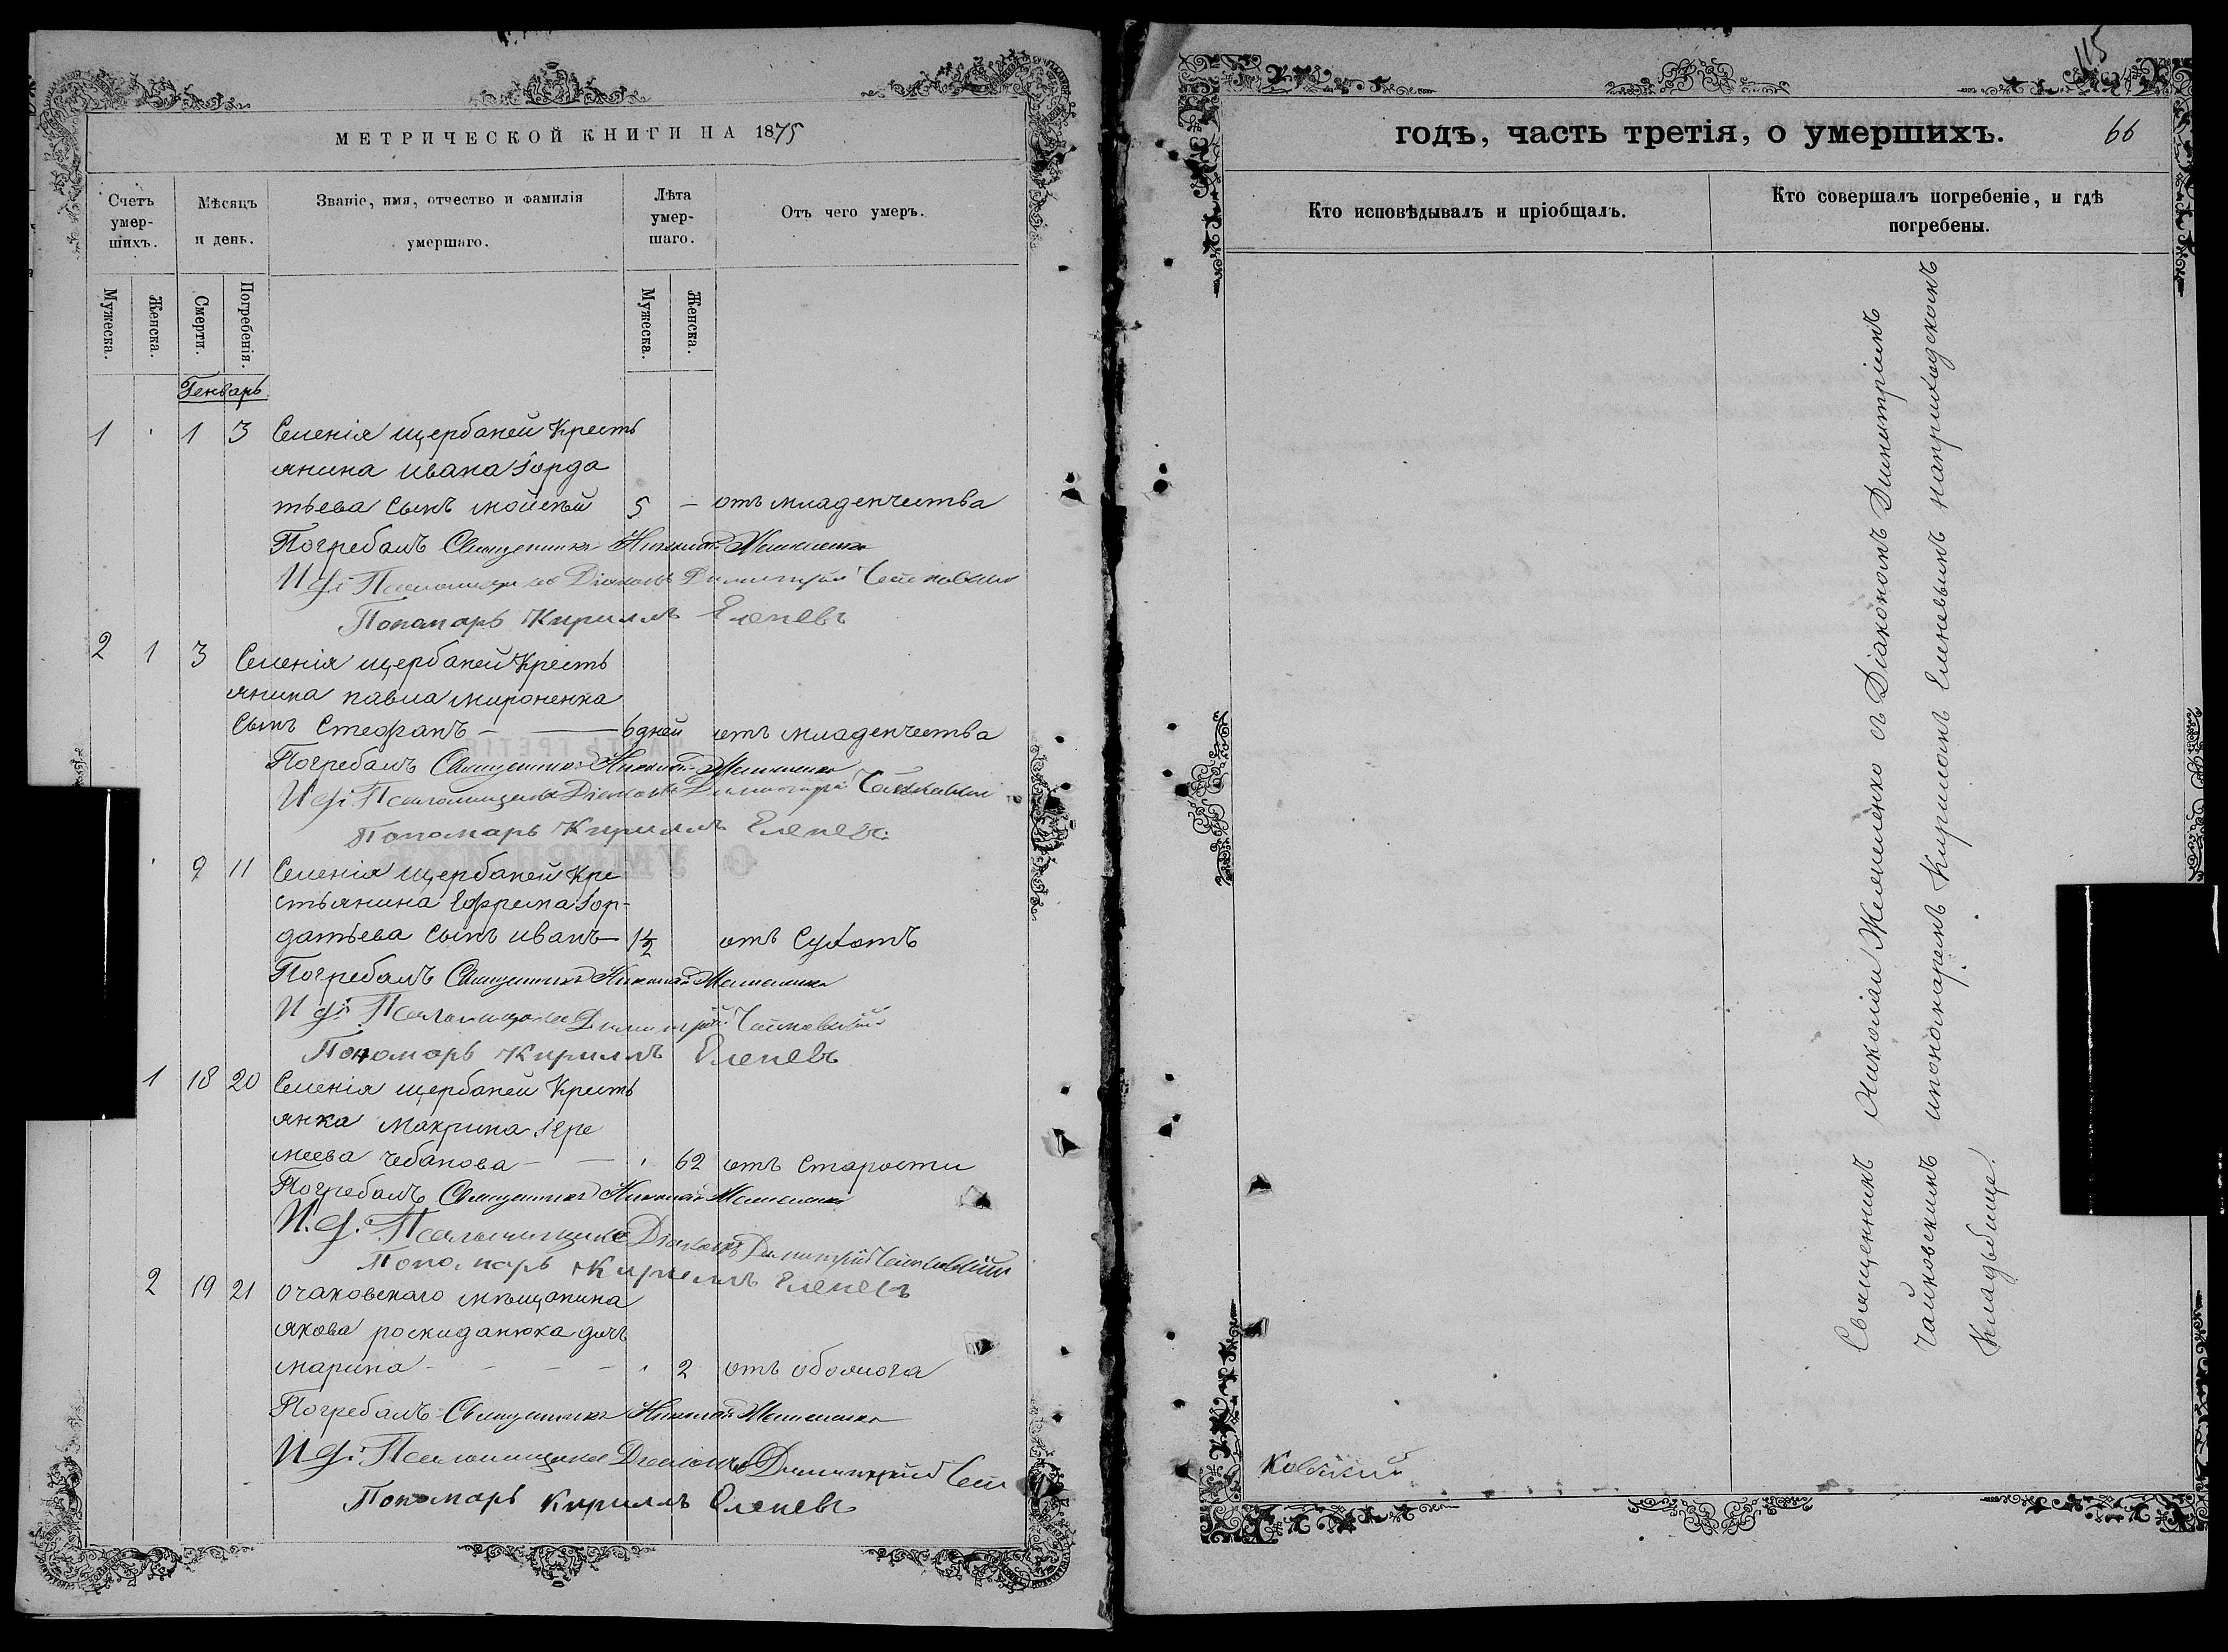 МЕТРИЧЕСКОЙ КНИГИ НА 1875
Счетъ умер-шихъ.
Мѣсяцъ и день.
Званіе, имя, отчество и фамилія умершаго.
Лѣта умер-шаго.
Отъ чего умеръ.
Мужеска.
Женска.
Смерти.
Погребенія.
Мужеска.
Женска.
Генварь
1 1 3 Селенія щербаней Кресть
янина ивана горда
тьева Сынъ мойсей 5 – отъ младенчества
Погребалъ Священникъ Николай Желеменко
И. д. Псаломщика Діаконъ Димитрій Чайковскій
Пономарь Кириллъ Еленевъ
2 1 3 Селенія щербаней Кресть
янина павла мироненка
Сынъ Стефанъ – 6 дней отъ младенчества
Погребалъ Священникъ Николай Желеменко
И. д. Псаломщика Діаконъ Димитрій Чайковскій
Пономарь Кириллъ Еленевъ
9 11 Селенія щербаней Кре
стьянина Ефрема гор-
датьева Сынъ иванъ – 1½ отъ Сухотъ
Погребалъ Священникъ Николай Желеменко
И. д. Псаломщика Димитрій Чайковскій
Пономарь Кириллъ Еленевъ
1 18 20 Селенія щербаней Кресть
янка макрина Іере
меева чебанова – 62 отъ Старости
Погребалъ Священникъ Николай Желеменко
И. д. Псаломщика Діаконъ Димитрій Чайковскій
Пономарь Кириллъ Еленевъ
2 19 21 очаковскаго мѣщанина
якова роскиданюка дочь
марина – 2 отъ обоолога
Погребалъ Священникъ Николай Желеменко
И. д. Псаломщика Діаконъ Димитрій Чай
Пономарь Кириллъ Еленевъ
115
годѣ, часть третія, о умершихъ. 66
Кто исповѣдывалъ и пріобщалъ.
Кто совершалъ погребеніе, и гдѣ погребены.
Священникъ Николаи Желеменко съ Діакономъ Димитріимъ
Чайковскимъ ипономаремъ Кириломъ Еленевымъ наприходскомъ
Кладъбище.
Ковскій